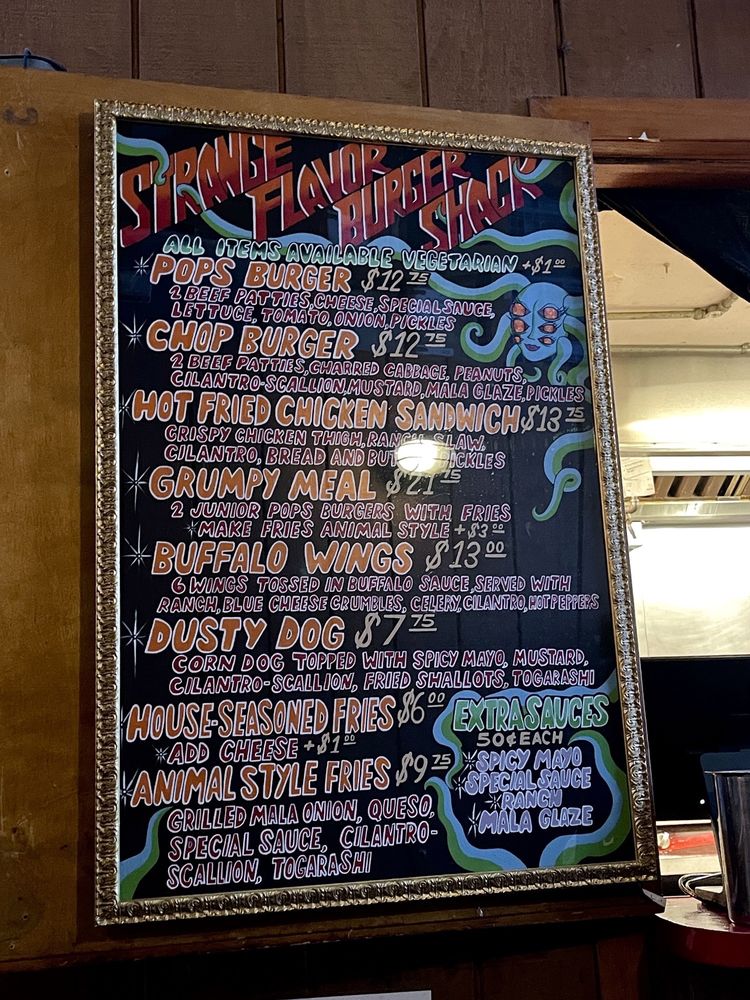 STRANGE
FLAVOR
BURGER
SHACK
ALL ITEMS AVAILABLE VEGETARIAN +$1.00
POPS BURGER $12.75
2 BEEF PATTIES, CHEESE, SPECIAL SAUCE,
LETTUCE, TOMATO, ONION, PICKLES
CHOP BURGER $12.75
2 BEEF PATTIES, CHARRED CABBAGE, PEANUTS,
CILANTRO-SCALLION, MUSTARD, MALA GLAZE, PICKLES
HOT FRIED CHICKEN SANDWICH $13.75
CRISPY CHICKEN THIGH, RANCH, SLAW,
CILANTRO, BREAD AND BUTTER PICKLES
GRUMPY MEAL $21.75
2 JUNIOR POPS BURGERS WITH FRIES
*MAKE FRIES ANIMAL STYLE +$3.00
BUFFALO WINGS $13.00
6 WINGS TOSSED IN BUFFALO SAUCE, SERVED WITH
RANCH, BLUE CHEESE CRUMBLES, CELERY, CILANTRO, HOT PEPPERS
DUSTY DOG $7.75
CORN DOG TOPPED WITH SPICY MAYO, MUSTARD,
CILANTRO-SCALLION, FRIED SHALLOTS, TOGARASHI
HOUSE-SEASONED FRIES $6.00
*ADD CHEESE +$1.00
ANIMAL STYLE FRIES $9.75
GRILLED MALA ONION, QUESO,
SPECIAL SAUCE, CILANTRO-
SCALLION, TOGARASHI
EXTRA SAUCES
50¢ EACH
*SPICY MAYO
*SPECIAL SAUCE
*RANCH
*MALA GLAZE